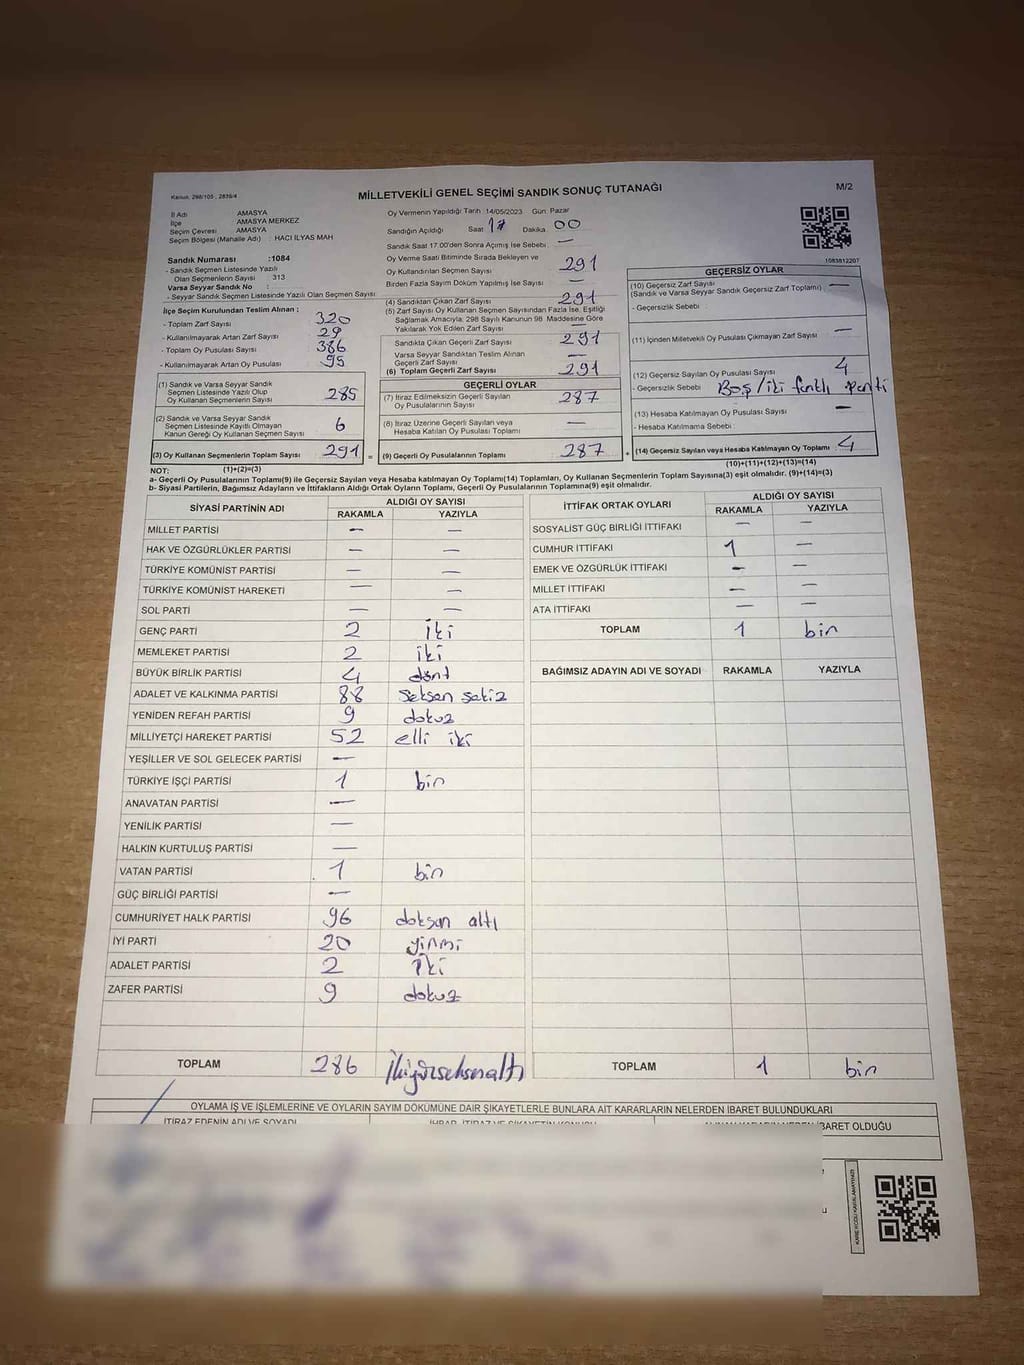 Kanun: 298/105 , 2839/4
MİLLETVEKİLİ GENEL SEÇİMİ SANDIK SONUÇ TUTANAĞI
M/2
İl Adı AMASYA
İlçe AMASYA MERKEZ
Seçim Çevresi AMASYA
Seçim Bölgesi (Mahalle Adı) : HACI İLYAS MAH
Sandık Numarası :1084
- Sandık Seçmen Listesinde Yazılı
Olan Seçmenlerin Sayısı 313
Varsa Seyyar Sandık No :
- Seyyar Sandık Seçmen Listesinde Yazılı Olan Seçmen Sayısı
İlçe Seçim Kurulundan Teslim Alınan :
- Toplam Zarf Sayısı 320
- Kullanılmayarak Artan Zarf Sayısı 29
- Toplam Oy Pusulası Sayısı 386
- Kullanılmayarak Artan Oy Pusulası 95
(1) Sandık ve Varsa Seyyar Sandık
Seçmen Listesinde Yazılı Olup
Oy Kullanan Seçmen Sayısı 285
(2) Sandık ve Varsa Seyyar Sandık
Seçmen Listesinde Kayıtlı Olmayan
Kanun Gereği Oy Kullanan Seçmen Sayısı 6
(3) Oy Kullanan Seçmenlerin Toplam Sayısı 291 =
Oy Vermenin Yapıldığı Tarih 14/05/2023 Gün: Pazar
Sandığın Açıldığı Saat 17 Dakika 00
Sandık Saat 17:00'den Sonra Açılmış İse Sebebi : —
Oy Verme Saati Bitiminde Sırada Bekleyen ve
Oy Kullandırılan Seçmen Sayısı 291
Birden Fazla Sayım Döküm Yapılmış İse Sayısı : —
(4) Sandıktan Çıkan Zarf Sayısı 291
(5) Zarf Sayısı Oy Kullanan Seçmen Sayısından Fazla İse, Eşitliği
Sağlamak Amacıyla, 298 Sayılı Kanunun 98. Maddesine Göre
Yakılarak Yok Edilen Zarf Sayısı —
Sandıkta Çıkan Geçerli Zarf Sayısı 291
Varsa Seyyar Sandıktan Teslim Alınan
Geçerli Zarf Sayısı —
(6) Toplam Geçerli Zarf Sayısı 291
GEÇERLİ OYLAR
(7) İtiraz Edilmeksizin Geçerli Sayılan
Oy Pusulalarının Sayısı 287
(8) İtiraz Üzerine Geçerli Sayılan veya
Hesaba Katılan Oy Pusulası Toplamı —
(9) Geçerli Oy Pusulalarının Toplamı 287 +
1083812207
GEÇERSİZ OYLAR
(10) Geçersiz Zarf Sayısı —
(Sandık ve Varsa Seyyar Sandık Geçersiz Zarf Toplamı)
- Geçersizlik Sebebi :
(11) İçinden Milletvekili Oy Pusulası Çıkmayan Zarf Sayısı —
(12) Geçersiz Sayılan Oy Pusulası Sayısı 4
- Geçersizlik Sebebi : Boş / iki farklı parti
(13) Hesaba Katılmayan Oy Pusulası Sayısı —
- Hesaba Katılmama Sebebi :
(14) Geçersiz Sayılan veya Hesaba Katılmayan Oy Toplamı 4
NOT: (1)+(2)=(3) (10)+(11)+(12)+(13)=(14)
a- Geçerli Oy Pusulalarının Toplamı(9) ile Geçersiz Sayılan veya Hesaba Katılmayan Oy Toplamı(14) Toplamları, Oy Kullanan Seçmenlerin Toplam Sayısına(3) eşit olmalıdır. (9)+(14)=(3)
b- Siyasi Partilerin, Bağımsız Adayların ve İttifakların Aldığı Ortak Oyların Toplamı, Geçerli Oy Pusulalarının Toplamına(9) eşit olmalıdır.
SİYASİ PARTİNİN ADI ALDIĞI OY SAYISI
RAKAMLA YAZIYLA
MİLLET PARTİSİ — —
HAK VE ÖZGÜRLÜKLER PARTİSİ — —
TÜRKİYE KOMÜNİST PARTİSİ — —
TÜRKİYE KOMÜNİST HAREKETİ — —
SOL PARTİ — —
GENÇ PARTİ 2 iki
MEMLEKET PARTİSİ 2 iki
BÜYÜK BİRLİK PARTİSİ 4 dört
ADALET VE KALKINMA PARTİSİ 88 seksen sekiz
YENİDEN REFAH PARTİSİ 9 dokuz
MİLLİYETÇİ HAREKET PARTİSİ 52 elli iki
YEŞİLLER VE SOL GELECEK PARTİSİ —
TÜRKİYE İŞÇİ PARTİSİ 1 bir
ANAVATAN PARTİSİ —
YENİLİK PARTİSİ —
HALKIN KURTULUŞ PARTİSİ —
VATAN PARTİSİ 1 bir
GÜÇ BİRLİĞİ PARTİSİ —
CUMHURİYET HALK PARTİSİ 96 doksan altı
İYİ PARTİ 20 yirmi
ADALET PARTİSİ 2 iki
ZAFER PARTİSİ 9 dokuz
TOPLAM 286 ikiyüzseksenaltı
İTTİFAK ORTAK OYLARI ALDIĞI OY SAYISI
RAKAMLA YAZIYLA
SOSYALİST GÜÇ BİRLİĞİ İTTİFAKI — —
CUMHUR İTTİFAKI 1 —
EMEK VE ÖZGÜRLÜK İTTİFAKI — —
MİLLET İTTİFAKI — —
ATA İTTİFAKI — —
TOPLAM 1 bir
BAĞIMSIZ ADAYIN ADI VE SOYADI RAKAMLA YAZIYLA
TOPLAM 1 bir
OYLAMA İŞ VE İŞLEMLERİNE VE OYLARIN SAYIM DÖKÜMÜNE DAİR ŞİKAYETLERLE BUNLARA AİT KARARLARIN NELERDEN İBARET BULUNDUKLARI
İTİRAZ EDENİN ADI VE SOYADI
İBARET OLDUĞU